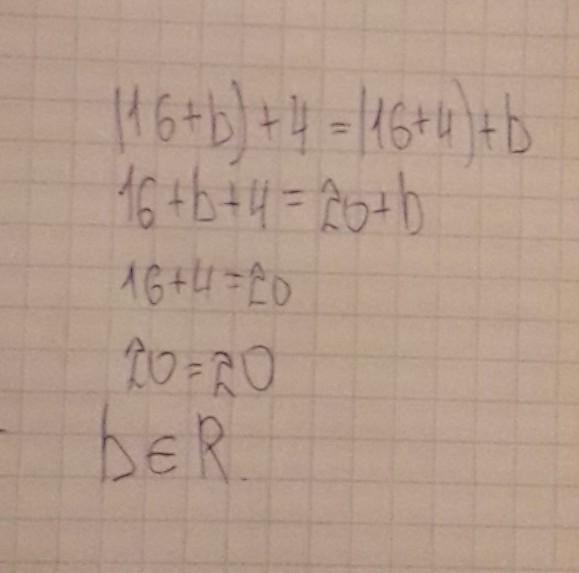 (16+b)+4=(16+4)+b
16+b+4=20+b
16+4=20
20=20
b∈R.